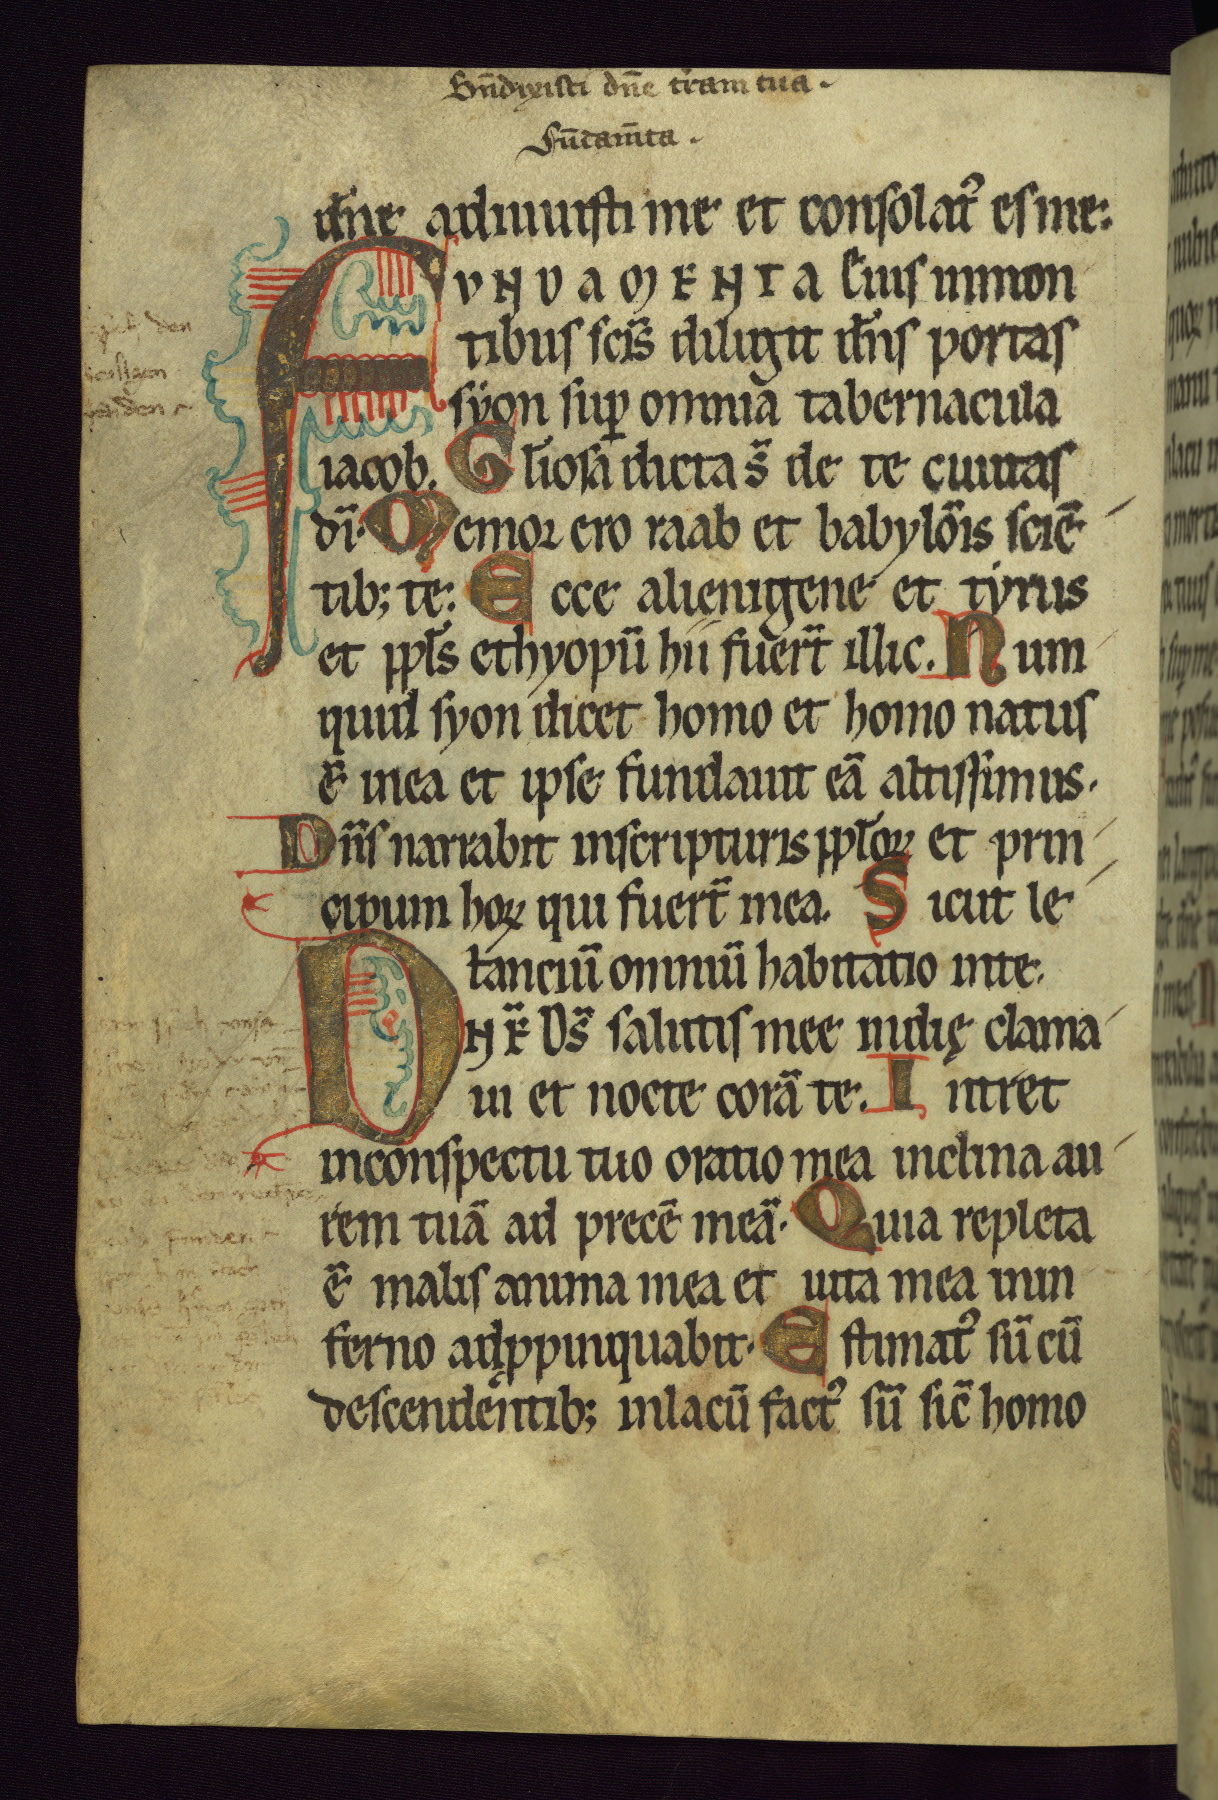 Bñdixisti dñe t̃ram tua.
Fũdam̃ta.
dñe adiuuisti me et consolat᷒ es me:
FVNDAMENTA Eius inmon
tibus sc̃is diligit dñs portas
syon sup̱ omnia tabernacula
iacob. Gl̃iosa dicta s̃ de te ciuitas
dĩ. Memoꝝ ero raab et babylõis sciẽ
tib; te: Ecce alienigene et tyrus
et ppl̃s ethyopũ hii fuer̃t illic. Num
quid syon dicet homo et homo natus
ẽ inea et ipse fundauit eã altissimus.
Dñs narrabit inscripturis ppl̃oꝝ et prin
cipum hoꝝ qui fuer̃t inea. Sicut le
tanciũ omniũ habitatio inte.
DÑE Ds̃ salutis mee indię clama
ui et nocte corã te. Intret
inconspectu tuo oratio mea inclina au
rem tuã ad precẽ meã. Quia repleta
ẽ malis anima mea et uita mea inin
ferno adp̱pinquabit. Estimat᷒ sũ cũ
descendentib; inlacũ fact᷒ sũ sic̃ homo